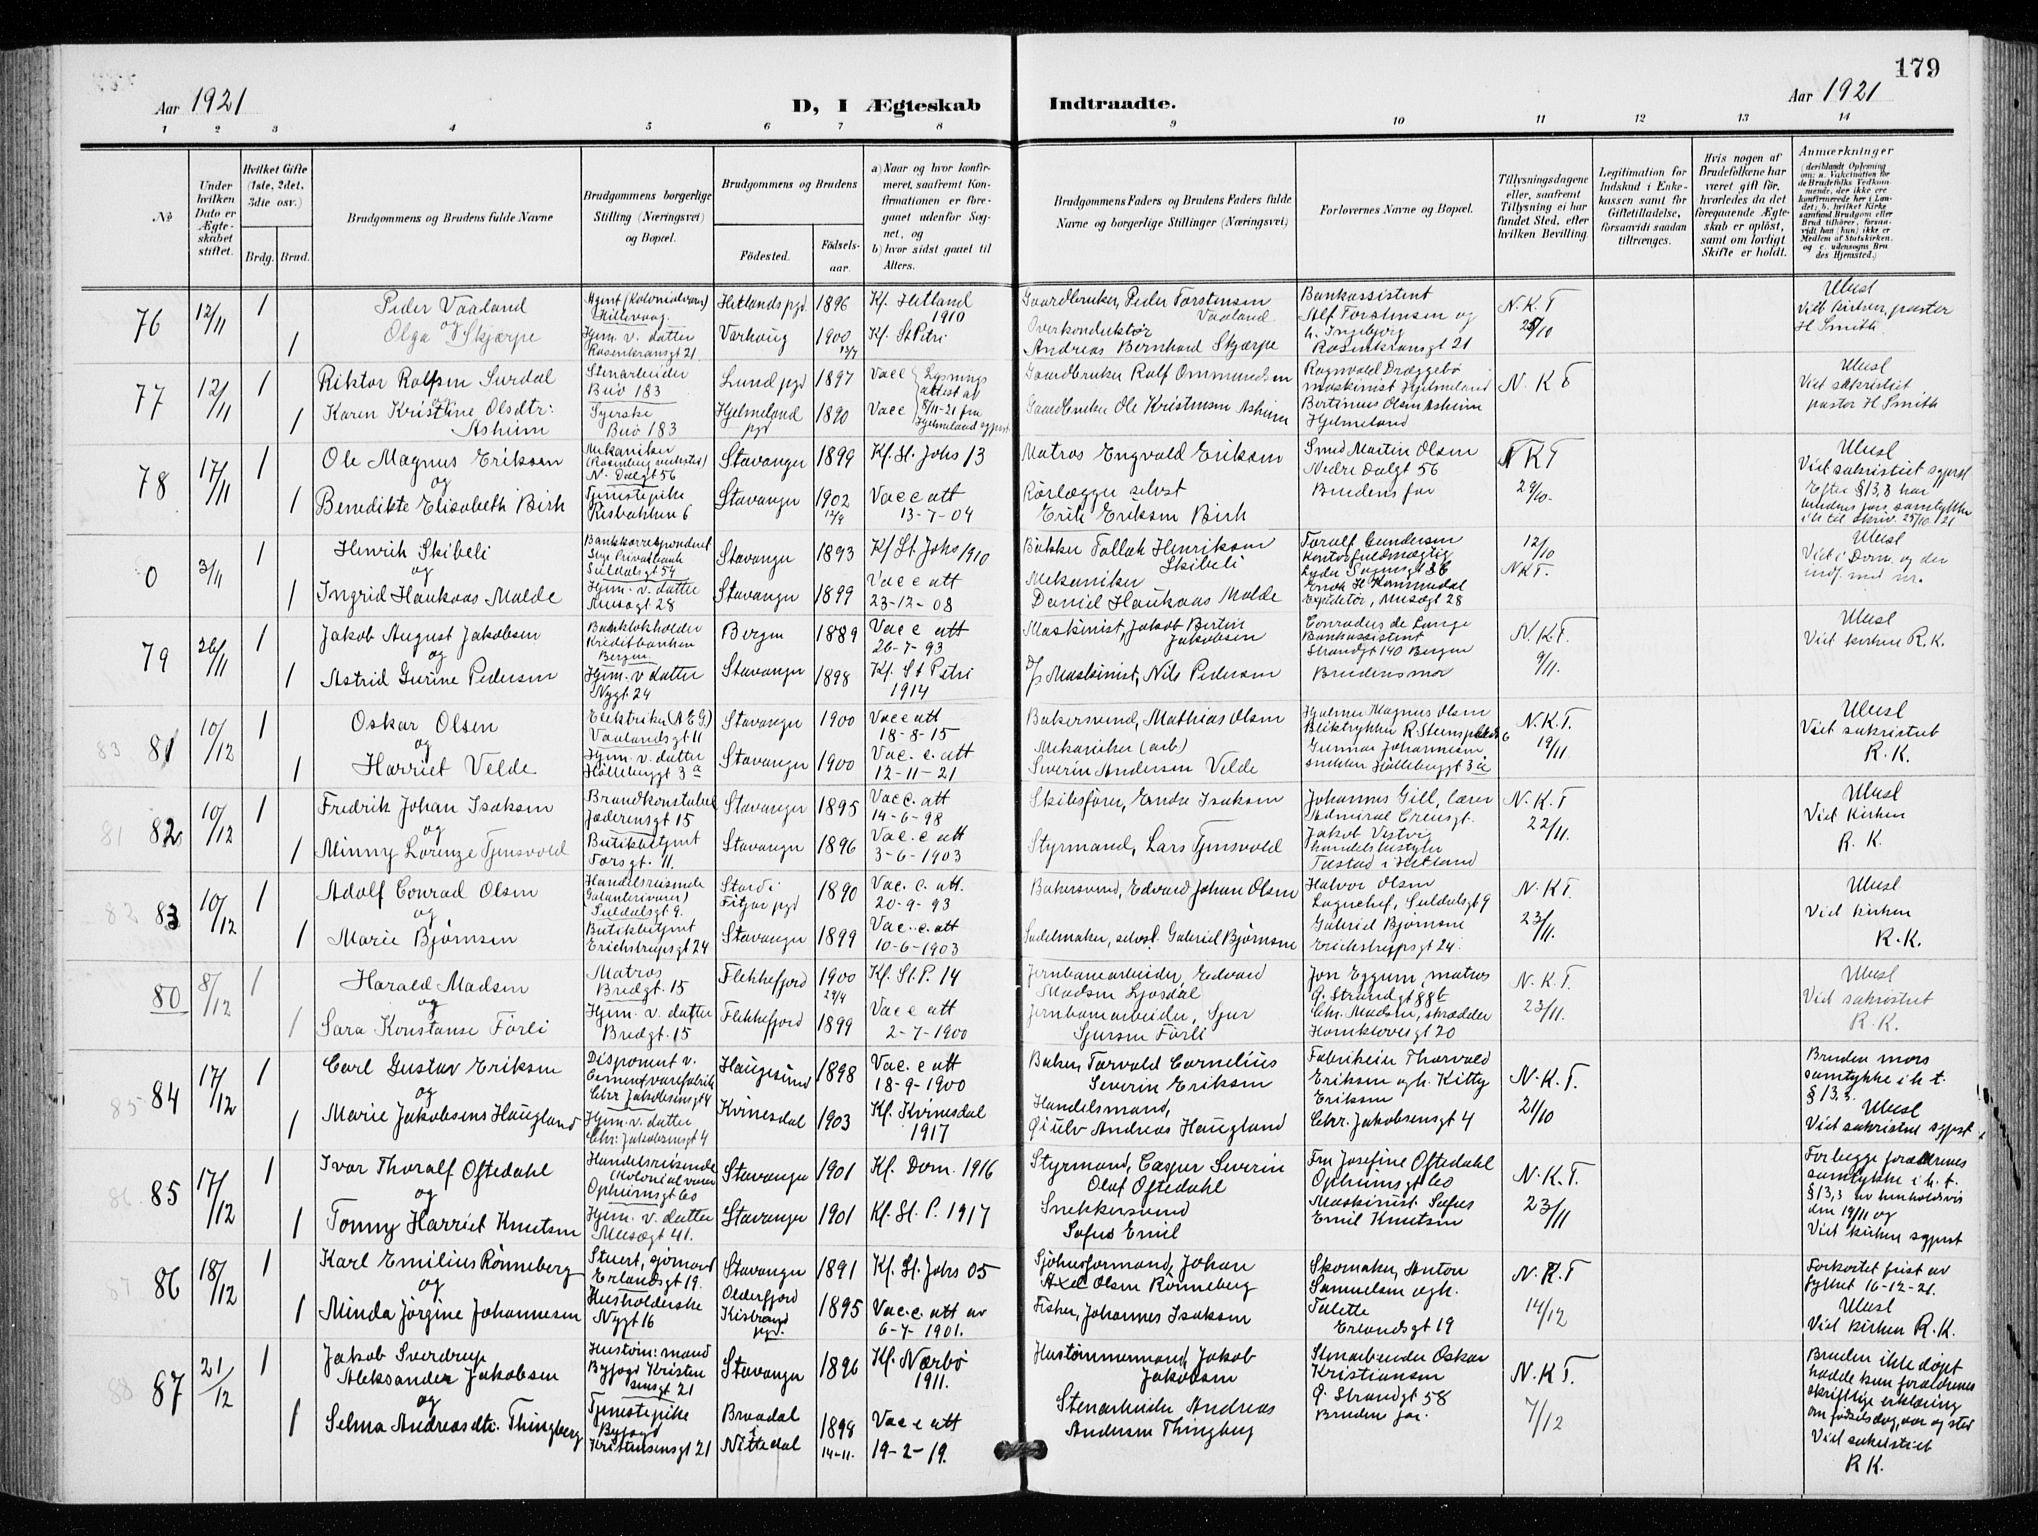 179
Aar 1921
D, I Ægteskab Indtraadte.
Aar 1921
1 2 3 4 5 6 7 8 9 10 11 12 13 14
№
Under hvilken Dato er Ægteskabet stiftet.
Hvilket Gifte (1ste, 2det, 3die osv.)
Brdg. Brud.
Brudgommens og Brudens fulde Navne
Brudgommens borgerlige Stilling (Næringsvei) og Bopæl.
Brudgommens og Brudens
Födested.
Födselsaar.
a) Naar og hvor konfirmeret, saafremt Konfirmationen er foregaaet udenfor Sognet, og
b) hvor sidst gaaet til Alters.
Brudgommens Faders og Brudens Faders fulde Navne og borgerlige Stillinger (Næringsvei)
Forlovernes Navne og Bopæl.
Tillysningsdagene eller, saafremt Tillysning ei har fundet Sted, efter hvilken Bevilling.
Legitimation for Indskud i Enkekassen samt for Giftetilladelse, forsaavidt saadan tiltrænges.
Hvis nogen af Brudefolkene har været gift før, hvorledes da det foregaaende Ægteskab er oplöst, samt om lovligt Skifte er holdt.
Anmærkninger
76 12/11 1 Peder Vaaland Agent (Kolonialvarer) Hillevaag. Hetlands pgd 1896 Kf. Hetland 1910 Gaardbruker, Peder Torstensen Vaaland Bankassistent Alf Torstensen og N.K.T 25/10 Ubesl Viet kirken, pastor H Smith
og
1 Olga Skjærpe Hjem. v. datter Rosenkransgt 21 Varhoug 1900 12/7 Kf. St Petri Overkonduktør Andreas Bernhard Skjærpe h. Ingeborg Rosenkransgt 21
77 12/11 1 Riktor Rolfsen Surdal Stenarbeider Buö 183 Lund pgd 1897 Vacc Lysnings attest av 8/11-21 fra Hjelmeland sgprst Gaardbruker Rolf Ommundsen Ragnvald Dræggebö maskinist Hjelmeland N.K.T Ubesl Viet sakristiet pastor H Smith
og
1 Karen Kristine Olsdtr: Asheim Syerske Buö 183 Hjelmeland pgd 1890 Vacc Gaardbruker Ole Kristensen Asheim Bertinius Olsen Asheim Hjelmeland
78 17/11 1 Ole Magnus Eriksen Mekaniker (Rosenberg verksted) N. Dalgt 56 Stavanger 1899 Kf. St. Johs 13 Matros Engvald Eriksen Smed Martin Olsen Nedre Dalgt 56 N.K.T 29/10. Ubesl Viet sakristiet sgprst Efter §13,3 har brudens fars samtykke i h til skriv. 25/10 21
og
1 Benedikte Elisabeth Birk Tjenestepike Risbakken 6 Stavanger 1902 12/9 Vacc att 13-7-04 Rörlægger selvst Erik Eriksen Birk Brudens far
0 3/11 1 Henrik Skibeli Bankkorrespondent Stvgr Privatbank Suldalsgt 54 Stavanger 1893 Kf St. Johs 1910 Bøkker Tollak Henriksen Skibeli Toralf Gundersen Kontorfuldmægtig Lyder Sagensgt 8b 12/10 NKT. Ubesl Viet i Dom. og der indf. med nr.
og
1 Ingrid Haukaas Malde Hjem. v. datter Musægt 28 Stavanger 1899 Vacc att 23-12-08 Mekaniker Daniel Haukaas Malde Enok H Kommedal Expeditör, Musægt 28
79 26/11 1 Jakob August Jakobsen Bankbokholder Kreditbanken Bergen Bergen 1889 Vacc att 26-7-93 Maskinist, Jakob Bertin Jakobsen Conradus de Lange Bankassistent Strandgt 140 Bergen N.K.T. 9/11. Ubesl Viet kirken R.K.
og
1 Astrid Gurine Pedersen Hjem. v datter Nygt 24 Stavanger 1898 Kf. St Petri 1914 Maskinist, Nils Pedersen Brudens mor
83 81 10/12 1 Oskar Olsen Elektriker (A E G) Vaalandsgt 11 Stavanger 1900 Vacc att 18-8-15 Bakersvend, Mathias Olsen Hjalmer Magnus Olsen Bliktrykker N.K.T. 19/11. Ubesl Viet sakristiet R.K.
og
1 Harriet Velde Hjem. v. datter Hölleberggt 3a Stavanger 1900 Vac.c. att 12-11-21 Mekaniker (arb) Severin Andersen Velde Gunnar Johannesen snekker Hölleberggt 3a
81 82 10/12 1 Fredrik Johan Isaksen Brandkonstabel Jæderensgt 15 Stavanger 1895 Vacc. att 14-6-98 Skibsfører, Endre Isaksen Johannes Gill, lærer Admiral Cruysgt. N.K.T 22/11. Ubesl Viet kirken R.K.
og
1 Minny Lorenze Tjensvold Butikbetjent Torsgt. 11. Stavanger 1896 Vac.c att 3-6-1903 Styrmand, Lars Tjensvold Jakob Vestvig handelsbestyrer Tastad i Hetland
82 83 10/12 1 Adolf Conrad Olsen Handelsreisende Galanterivarer) Suldalsgt 9. Stord i Fitjar pgd 1890 Vac.c. att. 20-9-93 Bakersvend, Edvard Johan Olsen Halvor Olsen Lagerchef, Suldalsgt 9 N.K.T. 23/11. Ubesl Viet kirken R.K.
og
1 Marie Bjørnsen Butikbetjent Erichstrupsgt 24 Stavanger 1899 Vac.c. att 10-6-1903 Sadelmaker, selvst. Gabriel Bjørnsen Gabriel Bjørnsen Erichstrupsgt 24.
80 8/12 1 Harald Madsen Matros Bredgt. 15 Flekkefjord 1900 29/4 Kf. St. P. 14 Jernbanearbeider, Edvard Madsen Ljosdal Jon Eggum, matros Ö. Strandgt 88b N.K.T. 23/11. Ubesl Viet sakristiet R.K.
og
1 Sara Konstanse Förli Hjem. v. datter Bredgt. 15 Flekkefjord 1899 Vacc att 2-7-1900 Jernbanearbeider, Sjur Sjursen Förli Chr. Madsen, skrædder Hauklivesgt 20
85 84 17/12 1 Carl Gustav Eriksen Disponent v. Cementvarefabrik Chr Jakobsensgt 4 Haugesund 1898 Vac.c att 18-9-1900 Baker, Torvald Cornelius Severin Eriksen Fabrikeier Thorvald Eriksen og h. Kitty Eriksen N.K.T. 21/10 Bruden mors samtykke i h. t. §13,3. Ubesl Viet sakristiet sgprst.
og
1 Marie Jakobsens Haugland Hjem. v. datter Chr: Jakobsensgt 4 Kvinesdal 1903 Kf. Kvinesdal 1917 Handelsmand, Andreas Haugland Chr. Jakobsensgt 4
86 85 17/12 1 Ivar Thoralf Oftedahl Handelsreisende (Kolonialvarer Opheimsgt 60 Stavanger 1901 Kf. Dom. 1916 Styrmand, Casper Severin Olaf Oftedahl Fru Josefine Oftedahl Opheimsgt 60 N.K.T. 23/11 For begge forældrenes samtykke i h. t. §13,3 av henholdsvis den 19/11 og Viet kirken sgprst
og
1 Tonny Harriet Knutsen Hjem. v. datter Musægt 41. Stavanger 1901 Kf. St. P. 1917 Snekkersvend Sofus Emil Maskinist Sofus Emil Knutsen
87 86 18/12 1 Karl Emilius Rönneberg Stuert, sjømand Erlandsgt 19. Stavanger 1891 Kf. St. Johs 05 Sjøhusformand, Johan Axel Olsen Rønneberg Skomaker, Anton Samuelsen og h. N.K.T 14/12 Forkortet frist av fylket 16-12-21. Ubesl Viet kirken R.K.
og
1 Minda Jörgine Johannesen Husholderske Nygt 16 Olderfjord Kistrand pgd. 1895 Vac.c. att av 6-7-1901. Fisker, Johannes Isaksen Talette Erlandsgt 19
88 87 21/12 1 Jakob Sverdrup Aleksander Jakobsen Hustöm: mand Byfogd Kristensensgt 21 Stavanger 1896 Kf. Nærbö 1911. Hustømmermand, Jakob Jakobsen Stenarbeider Oskar Kristiansen Ö. Strandgt 58 N.K.T. 7/12 Bruden ikke døpt hadde kun forældrenes skriftlige erklæring om fødselsdag, aar og sted Viet sakristiet R K.
og
1 Selma Andreasdtr. Thingberg Tjenestepike Byfogd Kristensensgt 21 Braadal i Nittedal 1898 14-11. Vacc att 19-2-19. Stenarbeider Andreas Andersen Thingberg Bruden far.